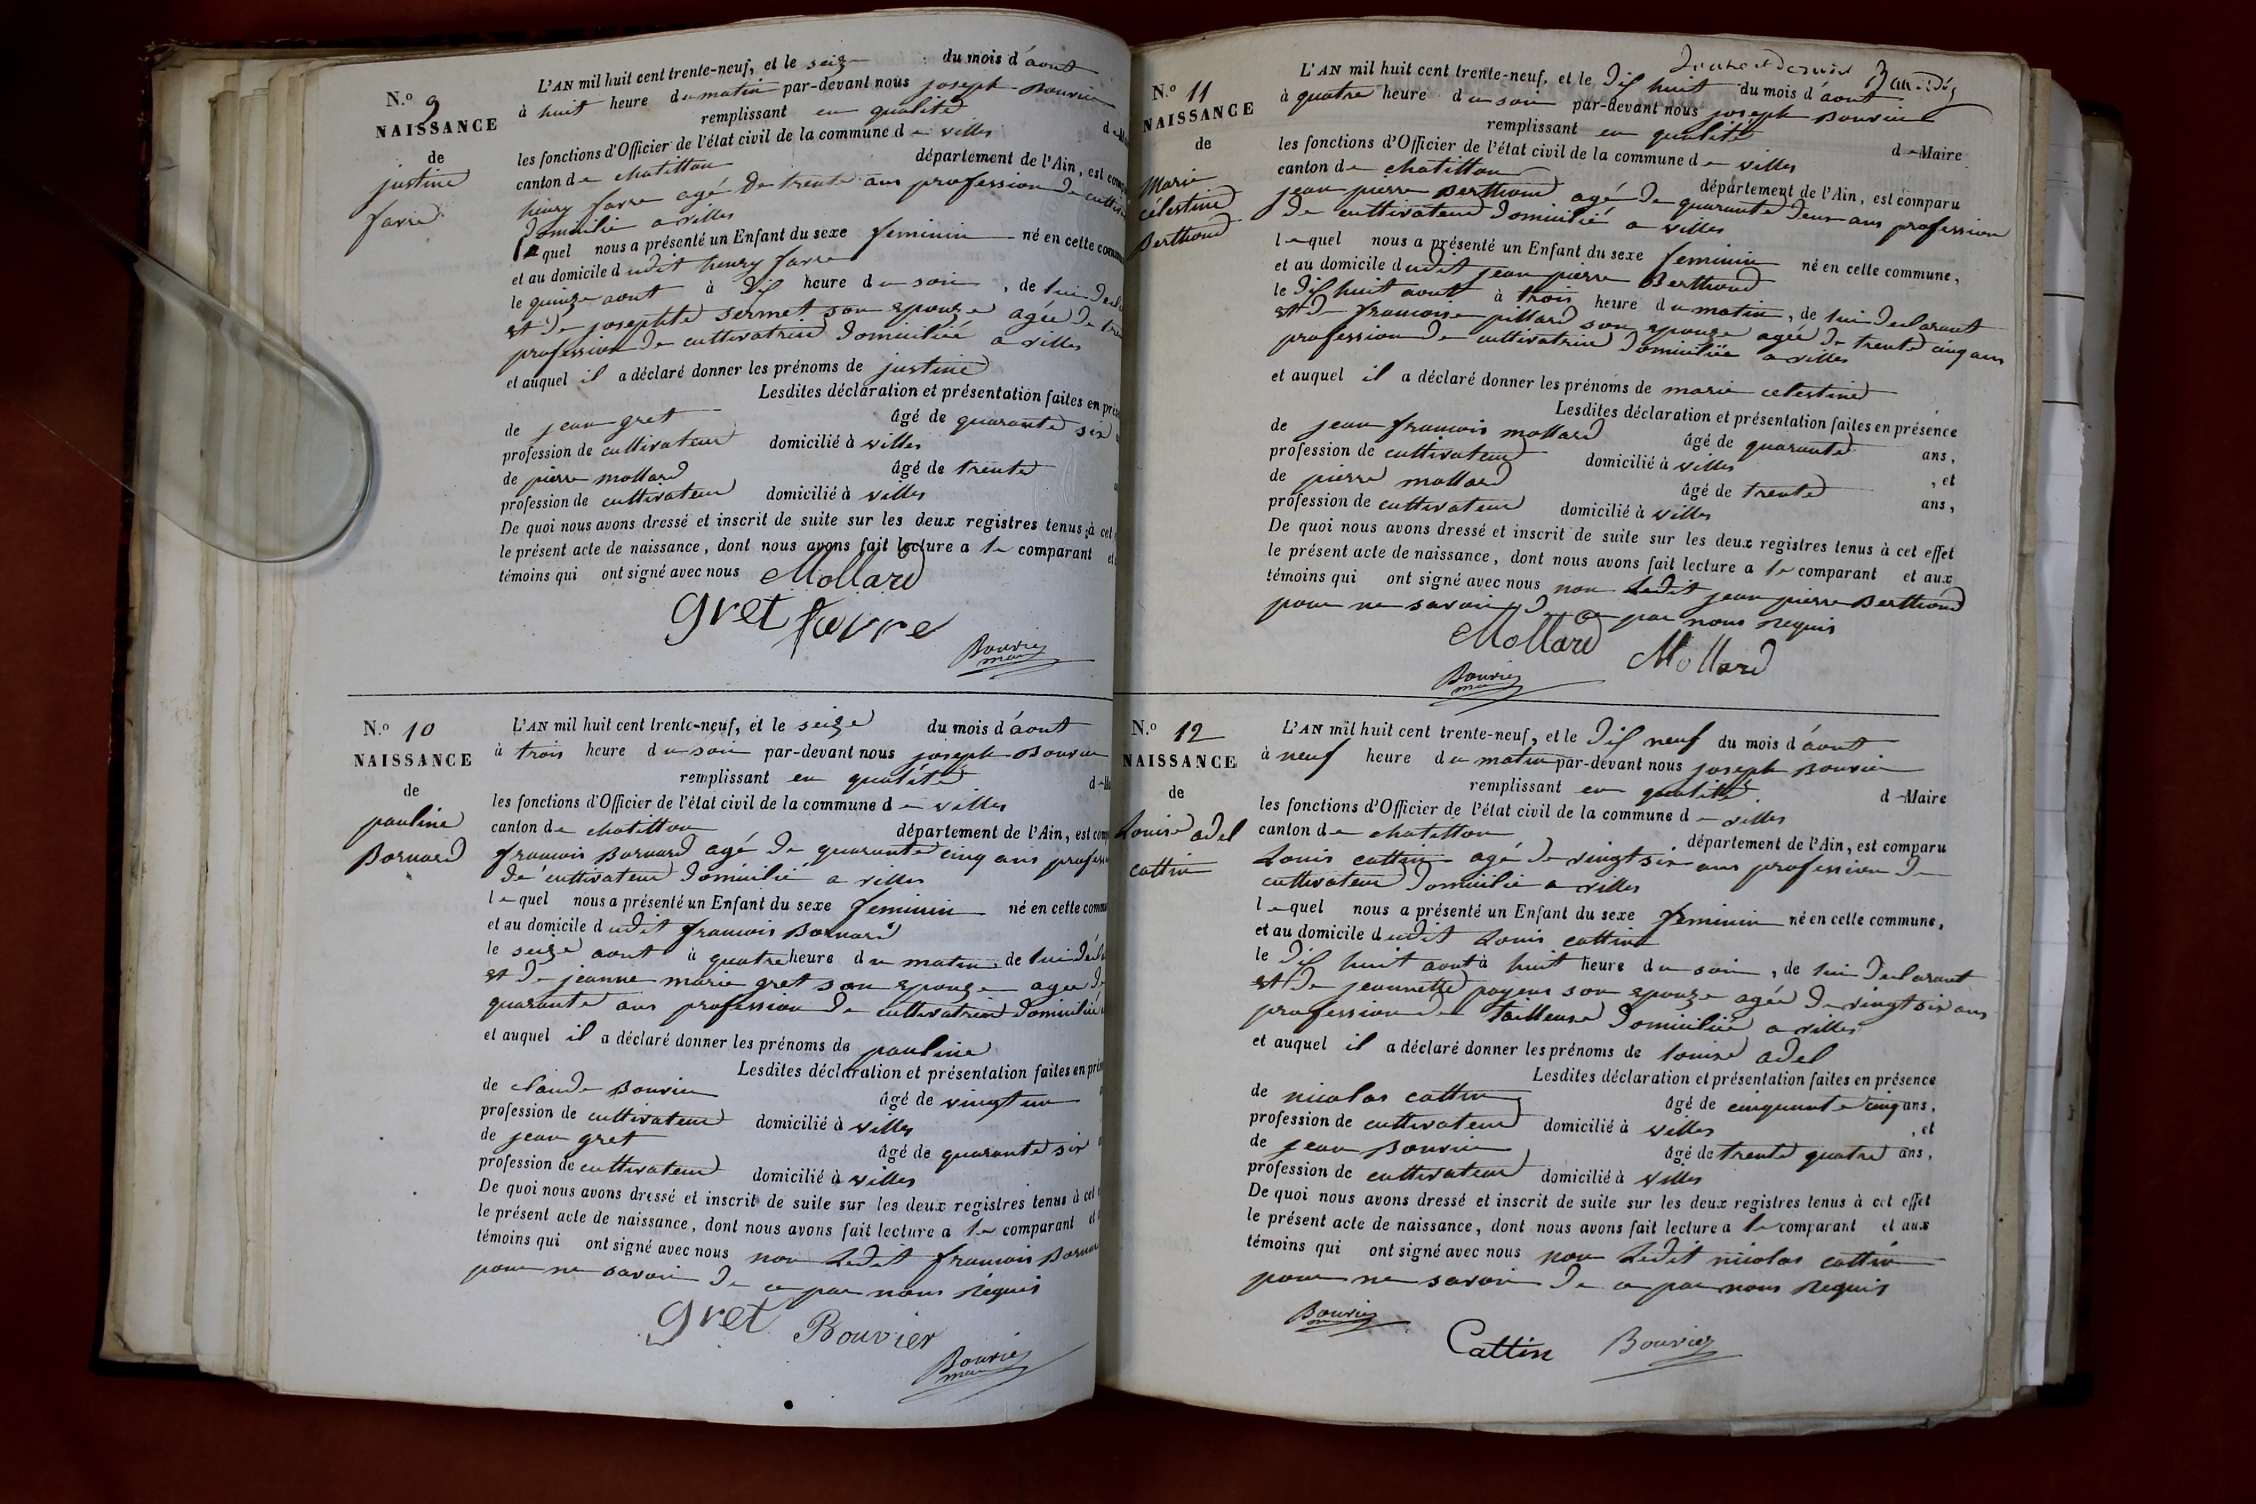 N.º 9
NAISSANCE
de
justine
favre
L'AN mil huit cent trente-neuf, et le seize du mois d'aout
à huit heure du matin par-devant nous joseph Bouvier
remplissant en qualité d
les fonctions d'Officier de l'état civil de la commune de villes
canton de chatillon département de l'Ain, est
henry favre agé de trente ans profession de
domicilié a villes
lequel nous a présenté un Enfant du sexe feminin né en cette
et au domicile dudit henry favre
le quinze aout à dix heure du soir, de lui
et de josephte sermet son epouze agée de
profession de cultivatrice domiciliée a villes
et auquel il a déclaré donner les prénoms de justine
Lesdites déclaration et présentation faites en
de jean gret âgé de quarante six
profession de cultivateur domicilié à villes
de pierre mollard âgé de trente
profession de cultivateur domicilié à villes
De quoi nous avons dressé et inscrit de suite sur les deux registres tenus à cet
le présent acte de naissance, dont nous avons fait lecture a le comparant
témoins qui ont signé avec nous Mollard
gret favre
Bouvier
maire
N.º 10
NAISSANCE
de
pauline
Bornard
L'AN mil huit cent trente-neuf, et le seize du mois d'aout
à trois heure du soir par-devant nous joseph Bouvier
remplissant en qualité d
les fonctions d'Officier de l'état civil de la commune de villes
canton de chatillon département de l'Ain, est
francois Bornard agé de quarante cinq ans
de cultivateur domicilié a villes
lequel nous a présenté un Enfant du sexe feminin né en cette
et au domicile dudit francois Bornard
le seize aout à quatre heure du matin, de lui
et de jeanne marie gret son epouze agée de
quarante ans profession de cultivatrice domiciliée
et auquel il a déclaré donner les prénoms de pauline
Lesdites déclaration et présentation faites en
de claude Bouvier âgé de vingt un
profession de cultivateur domicilié à villes
de jean gret âgé de quarante six
profession de cultivateur domicilié à villes
De quoi nous avons dressé et inscrit de suite sur les deux registres tenus à cet
le présent acte de naissance, dont nous avons fait lecture a le comparant
témoins qui ont signé avec nous non Ledit francois
pour ne savoir de ce par nous requis
gret Bouvier
Bouvier
maire
N.º 11
NAISSANCE
de
Marie
célestine
Berthoud
L'AN mil huit cent trente-neuf, et le dix huit du mois d'aout
à quatre heure du soir par-devant nous joseph Bouvier
remplissant en qualité de Maire
les fonctions d'Officier de l'état civil de la commune de villes
canton de chatillon département de l'Ain, est comparu
jean pierre Berthoud agé de quarante deux ans profession
de cultivateur domicilié a villes
lequel nous a présenté un Enfant du sexe feminin né en cette commune,
et au domicile dudit jean pierre Berthoud
le dix huit aout à trois heure du matin, de lui declarant
et de francoise pillard son epouze agée de trente cinq ans
profession de cultivatrice domiciliée a villes
et auquel il a déclaré donner les prénoms de marie celestine
Lesdites déclaration et présentation faites en présence
de jean francois mollard âgé de quarante ans,
profession de cultivateur domicilié à villes, et
de pierre mollard âgé de trente ans,
profession de cultivateur domicilié à villes
De quoi nous avons dressé et inscrit de suite sur les deux registres tenus à cet effet
le présent acte de naissance, dont nous avons fait lecture a le comparant et aux
témoins qui ont signé avec nous non Ledit jean pierre Berthoud
pour ne savoir de ce par nous requis
Mollard Mollard
Bouvier
maire
N.º 12
NAISSANCE
de
Louise adel
cattin
L'AN mil huit cent trente-neuf, et le dix neuf du mois d'aout
à neuf heure du matin par-devant nous joseph Bouvier
remplissant en qualité de Maire
les fonctions d'Officier de l'état civil de la commune de villes
canton de chatillon département de l'Ain, est comparu
Louis cattin agé de vingt six ans profession de
cultivateur domicilié a villes
lequel nous a présenté un Enfant du sexe feminin né en cette commune,
et au domicile dudit Louis cattin
le dix huit aout à huit heure du soir, de lui declarant
et de jeannette payeur son epouze agée de vingt six ans
profession de tailleuse domiciliée a villes
et auquel il a déclaré donner les prénoms de louise adel
Lesdites déclaration et présentation faites en présence
de nicolas cattin âgé de cinquante cinq ans,
profession de cultivateur domicilié à villes, et
de jean Bouvier âgé de trente quatre ans,
profession de cultivateur domicilié à villes
De quoi nous avons dressé et inscrit de suite sur les deux registres tenus à cet effet
le présent acte de naissance, dont nous avons fait lecture a le comparant et aux
témoins qui ont signé avec nous non Ledit nicolas cattin
pour ne savoir de ce par nous requis
Bouvier
maire
Cattin Bouvier